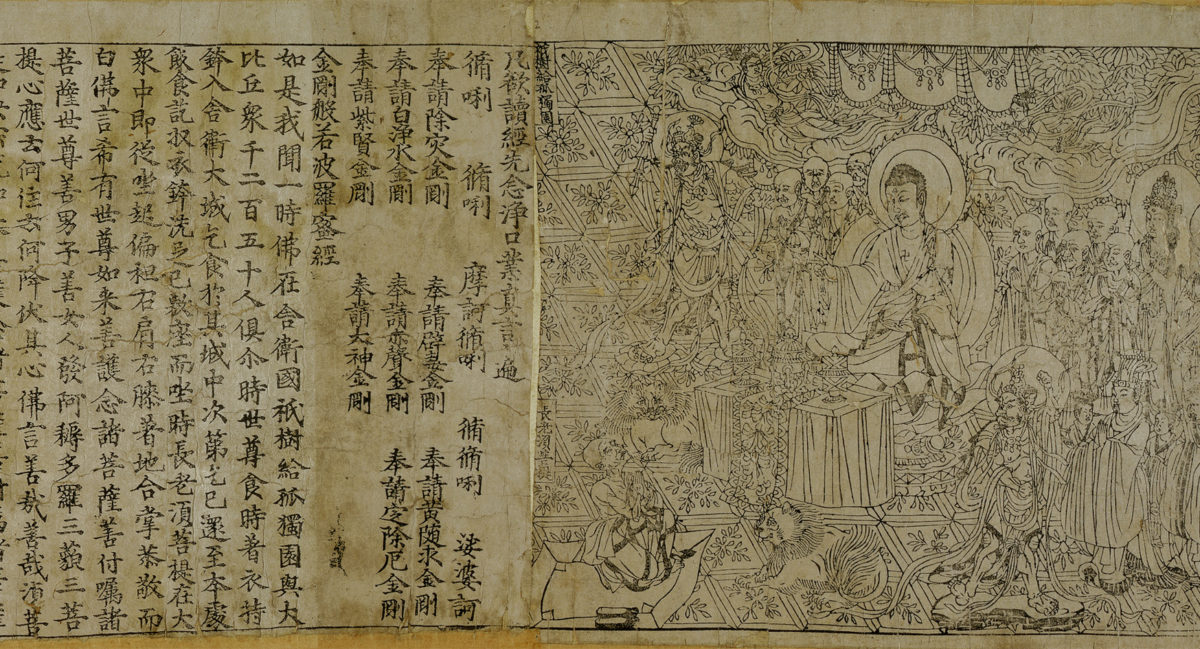 祇樹給孤獨園
長老須菩提
凡欲讀經先念淨口業真言一遍
脩唎 脩唎 摩訶脩唎 脩脩唎 娑婆訶
奉請除灾金剛 奉請辟毒金剛 奉請黃随求金剛
奉請白淨水金剛 奉請赤聲金剛 奉請定除厄金剛
奉請紫賢金剛 奉請大神金剛
金剛般若波羅蜜經
如是我聞一時佛在舍衛國祇樹給孤獨園與大
比丘衆千二百五十人俱尒時世尊食時著衣持
鉢入舍衛大城乞食於其城中次第乞已還至本處
飯食訖収衣鉢洗足已敷座而坐時長老湏菩提在大
衆中即從坐起偏袒右肩右膝著地合掌恭敬而
白佛言希有世尊如來善護念諸菩薩善付囑諸
菩薩世尊善男子善女人發阿耨多羅三藐三菩
提心應云何住云何降伏其心佛言善哉善哉湏菩